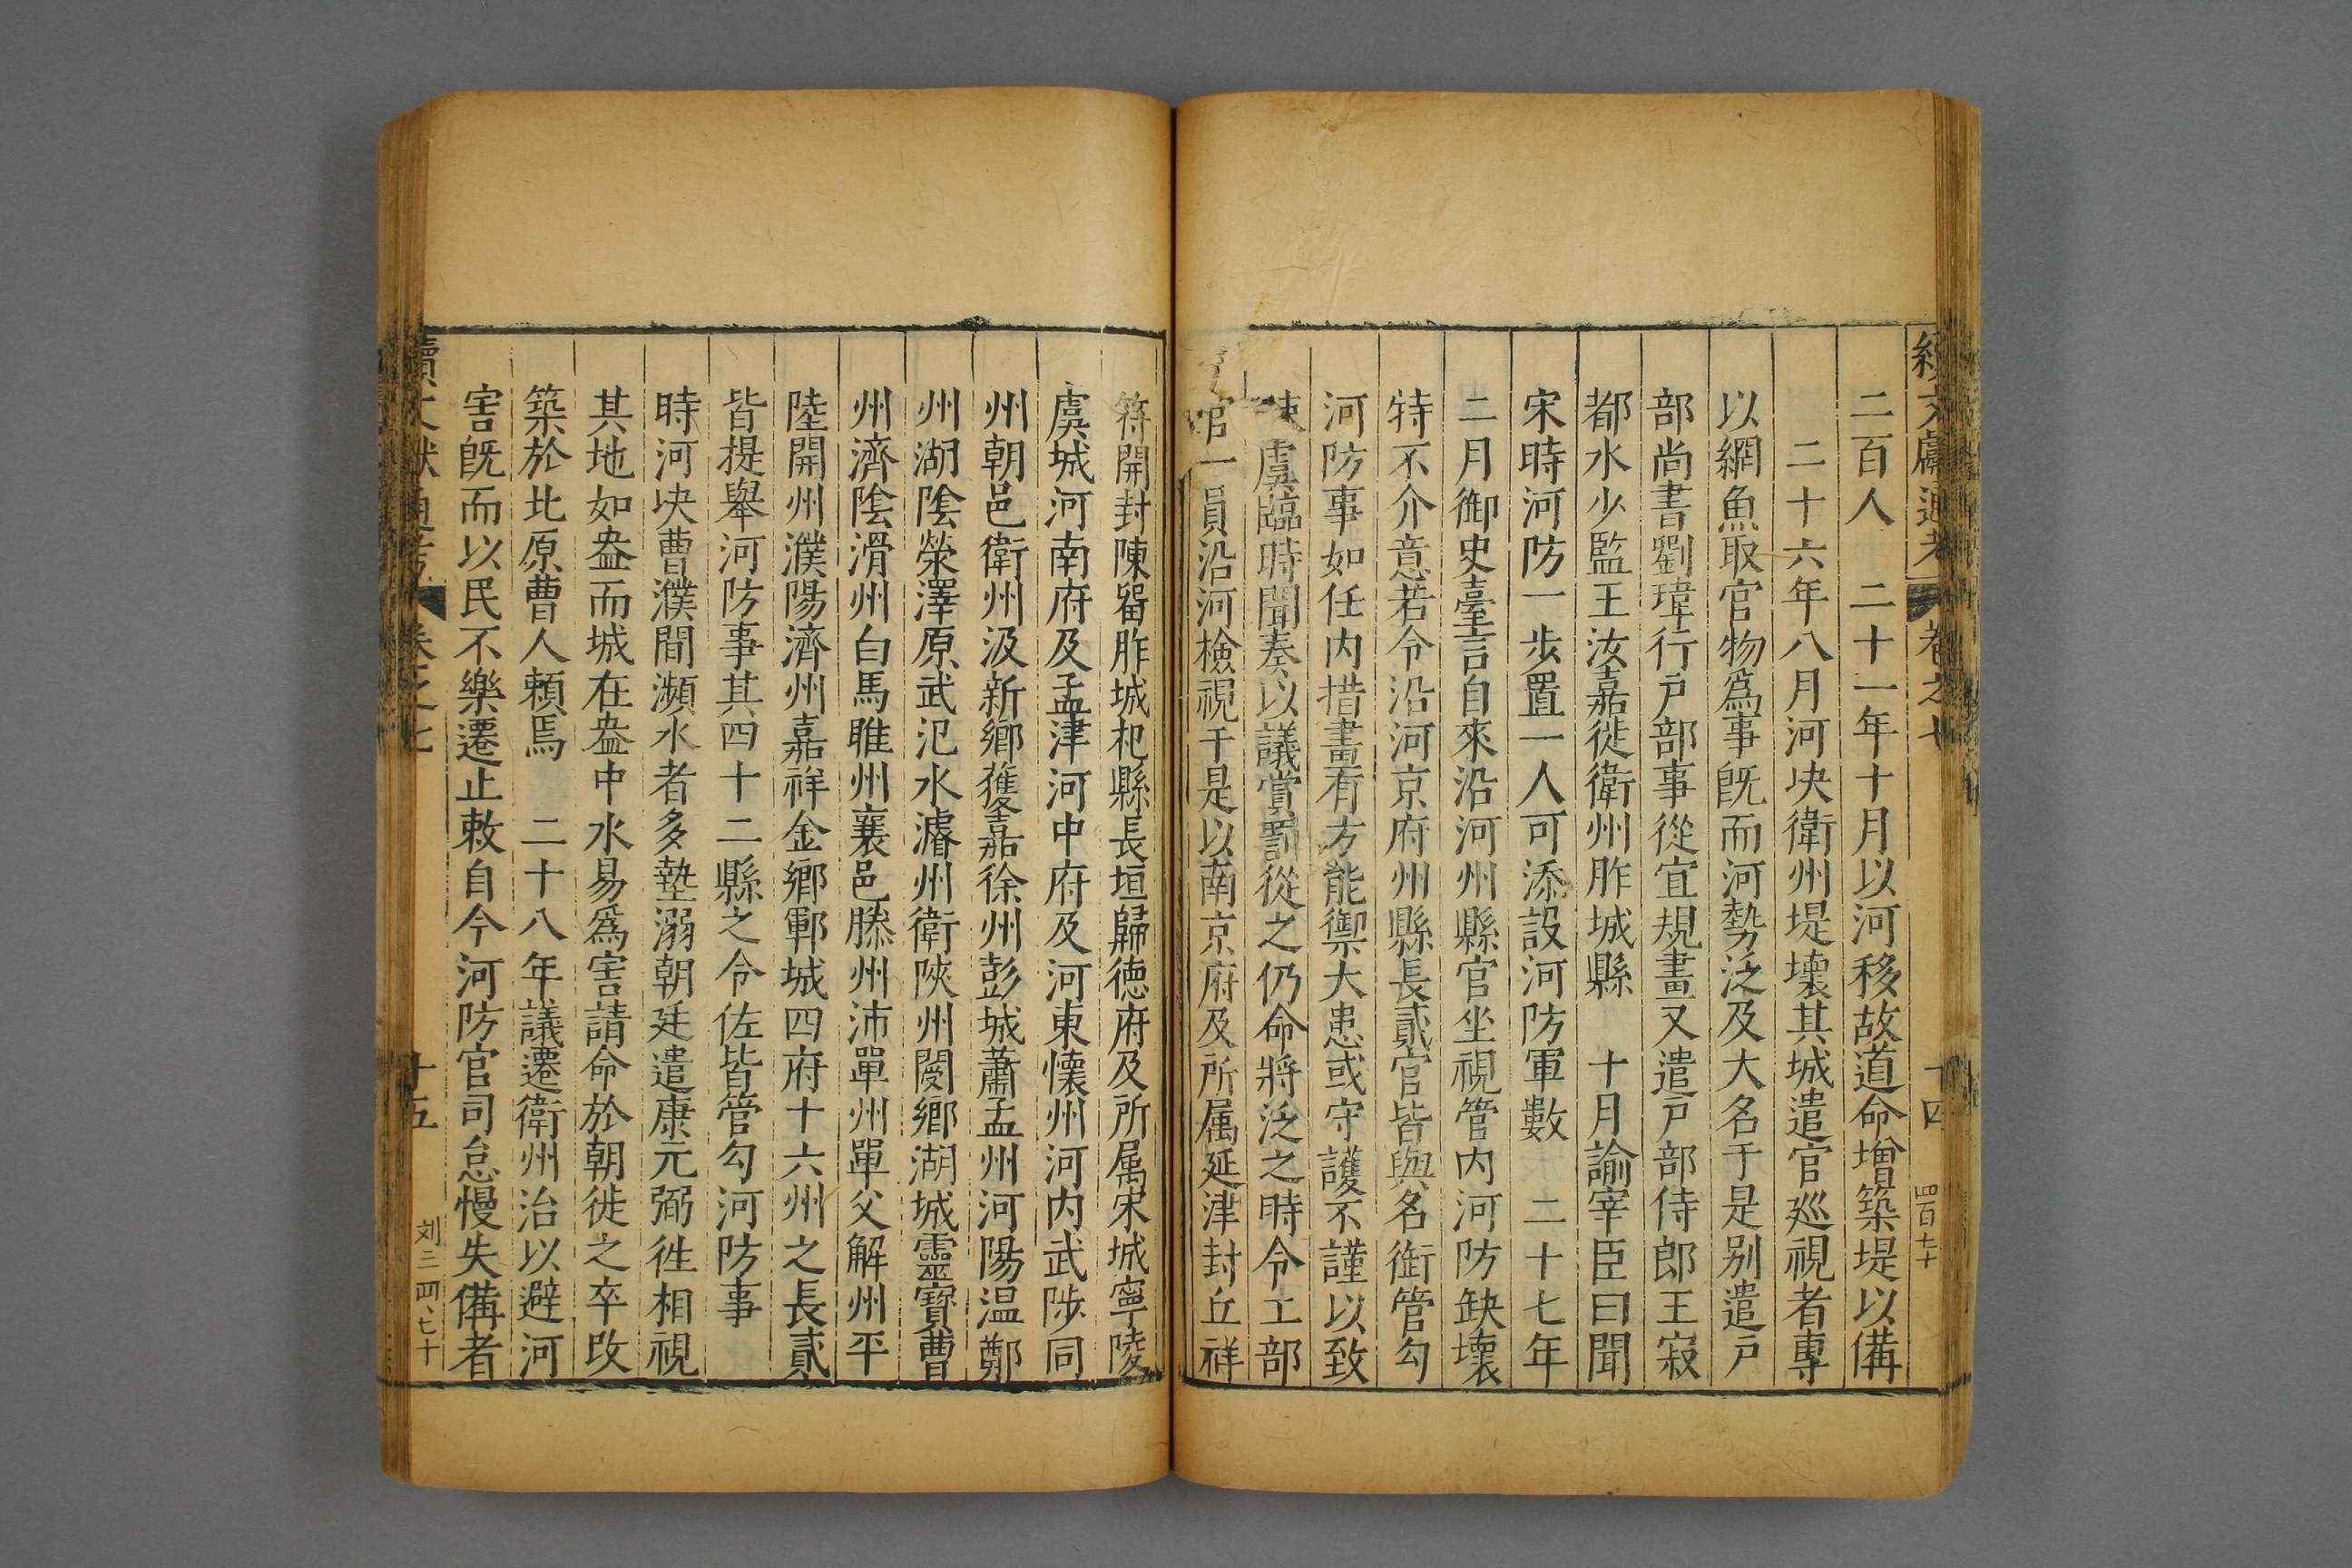 續文獻通考 卷之七 十四 四百七十
二百人 二十一年十月以河移故道命增築堤以備
二十六年八月河决衛州堤壞其城遣官廵視者專
以網魚取官物爲事旣而河勢泛及大名于是别遣戸
部尚書劉瑋行戸部事從宜規畫又遣戸部侍郎王寂
都水少監王汝嘉徙衛州胙城縣 十月諭宰臣曰聞
宋時河防一步置一人可添設河防軍數 二十七年
二月御史臺言自來沿河州縣官坐視管内河防缺壞
特不介意若令沿河京府州縣長貳官皆與名銜管勾
河防事如任内措畫有方能禦大患或守護不謹以致
虞臨時聞奏以議賞罰從之仍命將泛之時令工部
官一員沿河檢視于是以南京府及所属延津封丘祥
符開封陳留胙城杞縣長垣歸徳府及所属宋城寧陵
虞城河南府及孟津河中府及河東懷州河内武陟同
州朝邑衛州汲新鄉獲嘉徐州彭城蕭孟州河陽温鄭
州湖陰滎澤原武汜水濬州衛陜州閿鄉湖城靈寶曹
州濟陰滑州白馬睢州襄邑滕州沛單州單父解州平
陸開州濮陽濟州嘉祥金鄉鄆城四府十六州之長貳
皆提舉河防事其四十二縣之令佐皆管勾河防事
時河决曹濮間瀕水者多墊溺朝廷遣康元弼徃相視
其地如盎而城在盎中水易爲害請命於朝徙之卒改
築於北原曹人頼焉 二十八年議遷衛州治以避河
害旣而以民不樂遷止敕自今河防官司怠慢失備者
續文獻通考 卷之七 十五 刘三 四、七十